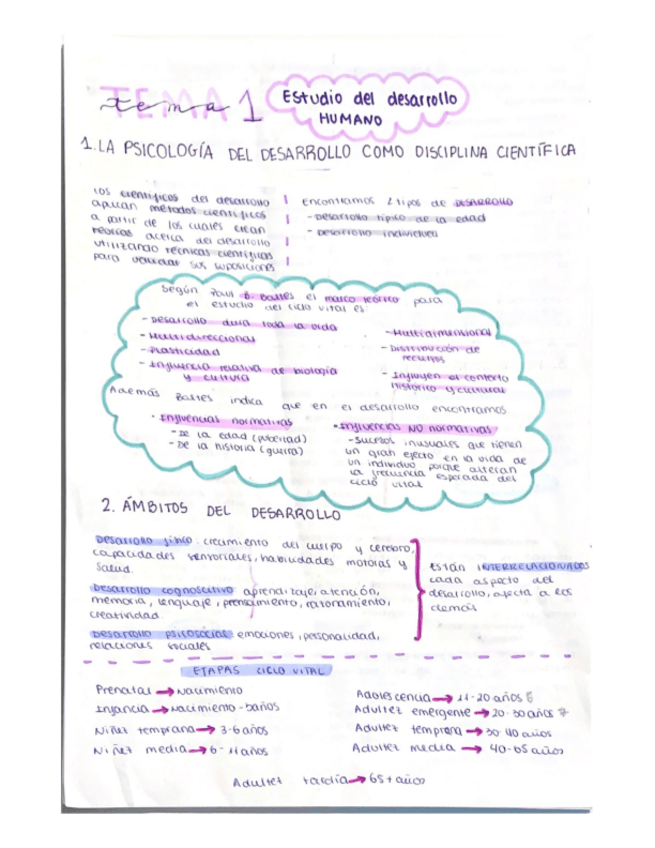 TEMA 1
Estudio del desarrollo
HUMANO
1. LA PSICOLOGÍA DEL DESARROLLO COMO DISCIPLINA CIENTÍFICA
Los científicos del desarrollo
aplican métodos científicos
a partir de los cuales crean
teorías acerca del desarrollo
utilizando técnicas científicas
para validar sus suposiciones
Encontramos 2 tipos de DESARROLLO
- Desarrollo típico de la edad
- Desarrollo individual
Según Paul B. Baltes el marco teórico para
el estudio del ciclo vital es
- Desarrollo dura toda la vida
- Multidireccional
- Plasticidad
- Influencia relativa de biología
y cultura
- Multidimensional
- Distribución de
recursos
- Influyen el contexto
histórico y cultural
Además Baltes indica que en el desarrollo encontramos
· Influencias normativas
- De la edad (pubertad)
- De la historia (guerra)
· Influencias NO normativas
- Sucesos inusuales que tienen
un gran efecto en la vida de
un individuo porque alteran
la secuencia esperada del
ciclo vital
2. ÁMBITOS DEL DESARROLLO
Desarrollo físico: crecimiento del cuerpo y cerebro,
capacidades sensoriales, habilidades motoras y
salud.
Desarrollo cognoscitivo: aprendizaje, atención,
memoria, lenguaje, pensamiento, razonamiento,
creatividad.
Desarrollo psicosocial: emociones, personalidad,
relaciones sociales
Están INTERRELACIONADOS
cada aspecto del
desarrollo, afecta a los
demás
ETAPAS CICLO VITAL
Prenatal → Nacimiento
Infancia → Nacimiento - 3años
Niñez temprana → 3-6 años
Niñez media → 6-11 años
Adolescencia → 11-20 años
Adultez emergente → 20-30 años
Adultez temprana → 30-40 años
Adultez media → 40-65 años
Adultez tardía → 65+ años